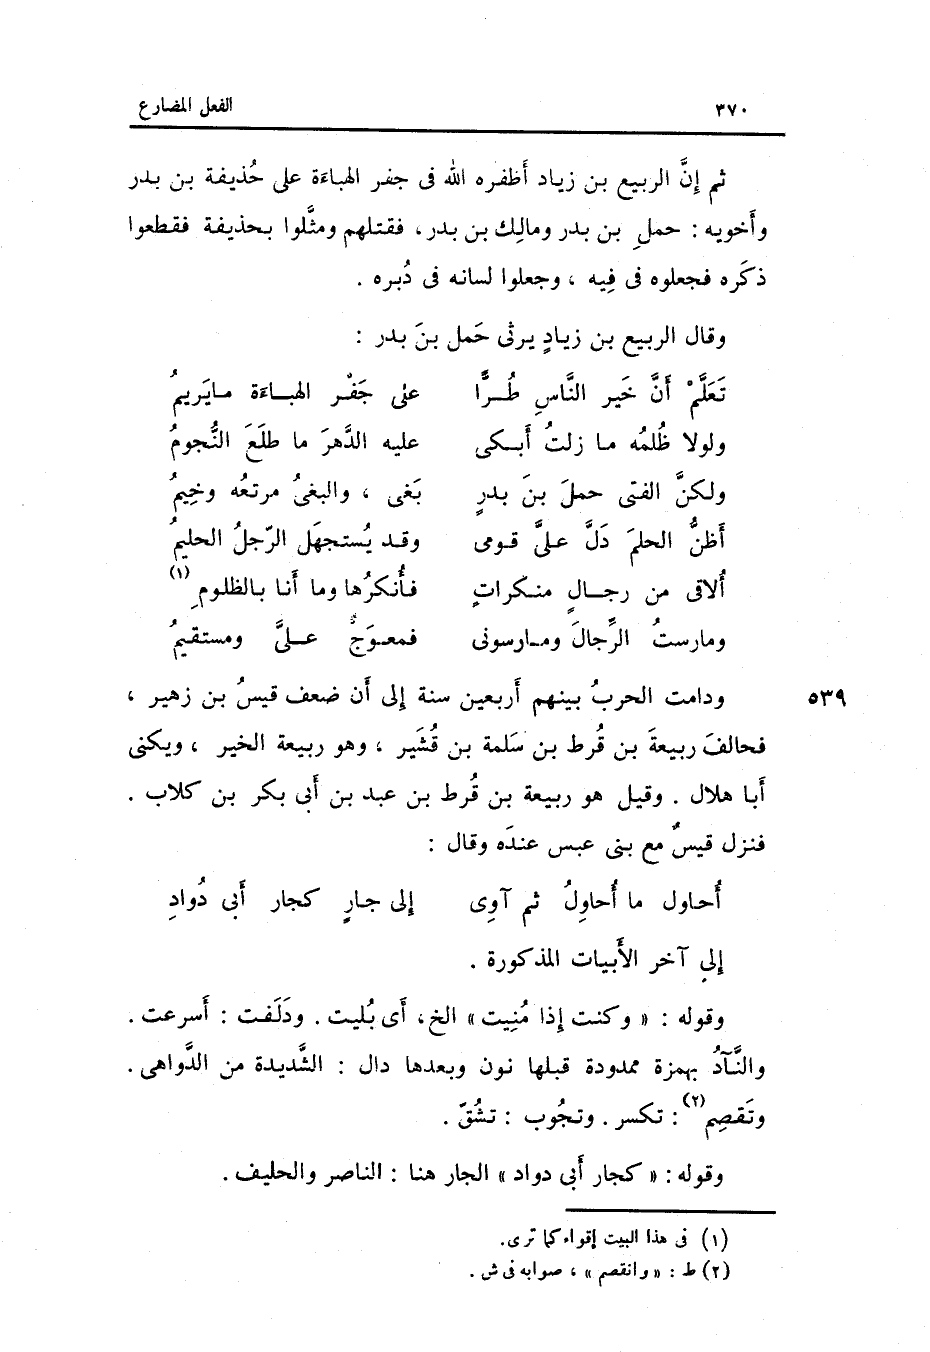 ٣٧٠ الفعل المضارع
ثم إنَّ الربيع بن زياد أظفره الله فى جفر الهباءة على حُذيفة بن بدر
وأخويه : حملِ بن بدر ومالِك بن بدر، فقتلهم ومثَّلوا بحذيفة فقطعوا
ذكَره فجعلوه فى فِيه ، وجعلوا لسانه فى دُبره .
وقال الربيع بن زيادٍ يرثى حَمل بنَ بدر :
تَعَلَّمْ أنَّ خَير النَّاسِ طُـرًّا على جَفْر الهبـاءة مايَريمُ
ولولا ظُلمُه ما زلتُ أبـكى عليه الدَّهرَ ما طلَعَ النُّجومُ
ولكنَّ الفتى حملَ بنَ بدرٍ بَغى ، والبغىُ مرتعُه وخِيمُ
أظنُّ الحلمَ دَلَّ علىَّ قومى وقد يُستجهَل الرّجلُ الحليمُ
أُلاقى من رجـالٍ منكراتٍ فأُنكرُها وما أنا بالظلومِ (١)
ومارستُ الرِّجالَ ومارسونى فمعوَجٌّ علىَّ ومستقيمُ
٥٣٩ ودامت الحربُ بينهم أربعين سنة إلى أن ضعف قيسُ بن زهير ،
فحالفَ ربيعةَ بن قُرط بن سَلمة بن قُشَير ، وهو ربيعة الخير ، ويكنى
أبا هلال . وقيل هو ربيعة بن قُرط بن عبد بن أبى بكر بن كلاب .
فنزل قيسٌ مع بنى عبس عندَه وقال :
أُحاول ما أُحاوِلُ ثم آوِى إلى جارٍ كجار أبى دُوادِ
إلى آخر الأبيات المذكورة .
وقوله : « وكنت إذا مُنِيت » الخ، أى بُليت . ودَلَفت : أسرعت .
والنَّآدُ بهمزة ممدودة قبلها نون وبعدها دال : الشَّديدة من الدَّواهى .
وتَقصِم (٢) : تكسر . وتجُوب : تشُقّ .
وقوله : « كجار أبى دواد » الجار هنا : الناصر والحليف .
(١) فى هذا البيت إقواء كما ترى.
(٢) ط : « وانقصم » ، صوابه فى ش .